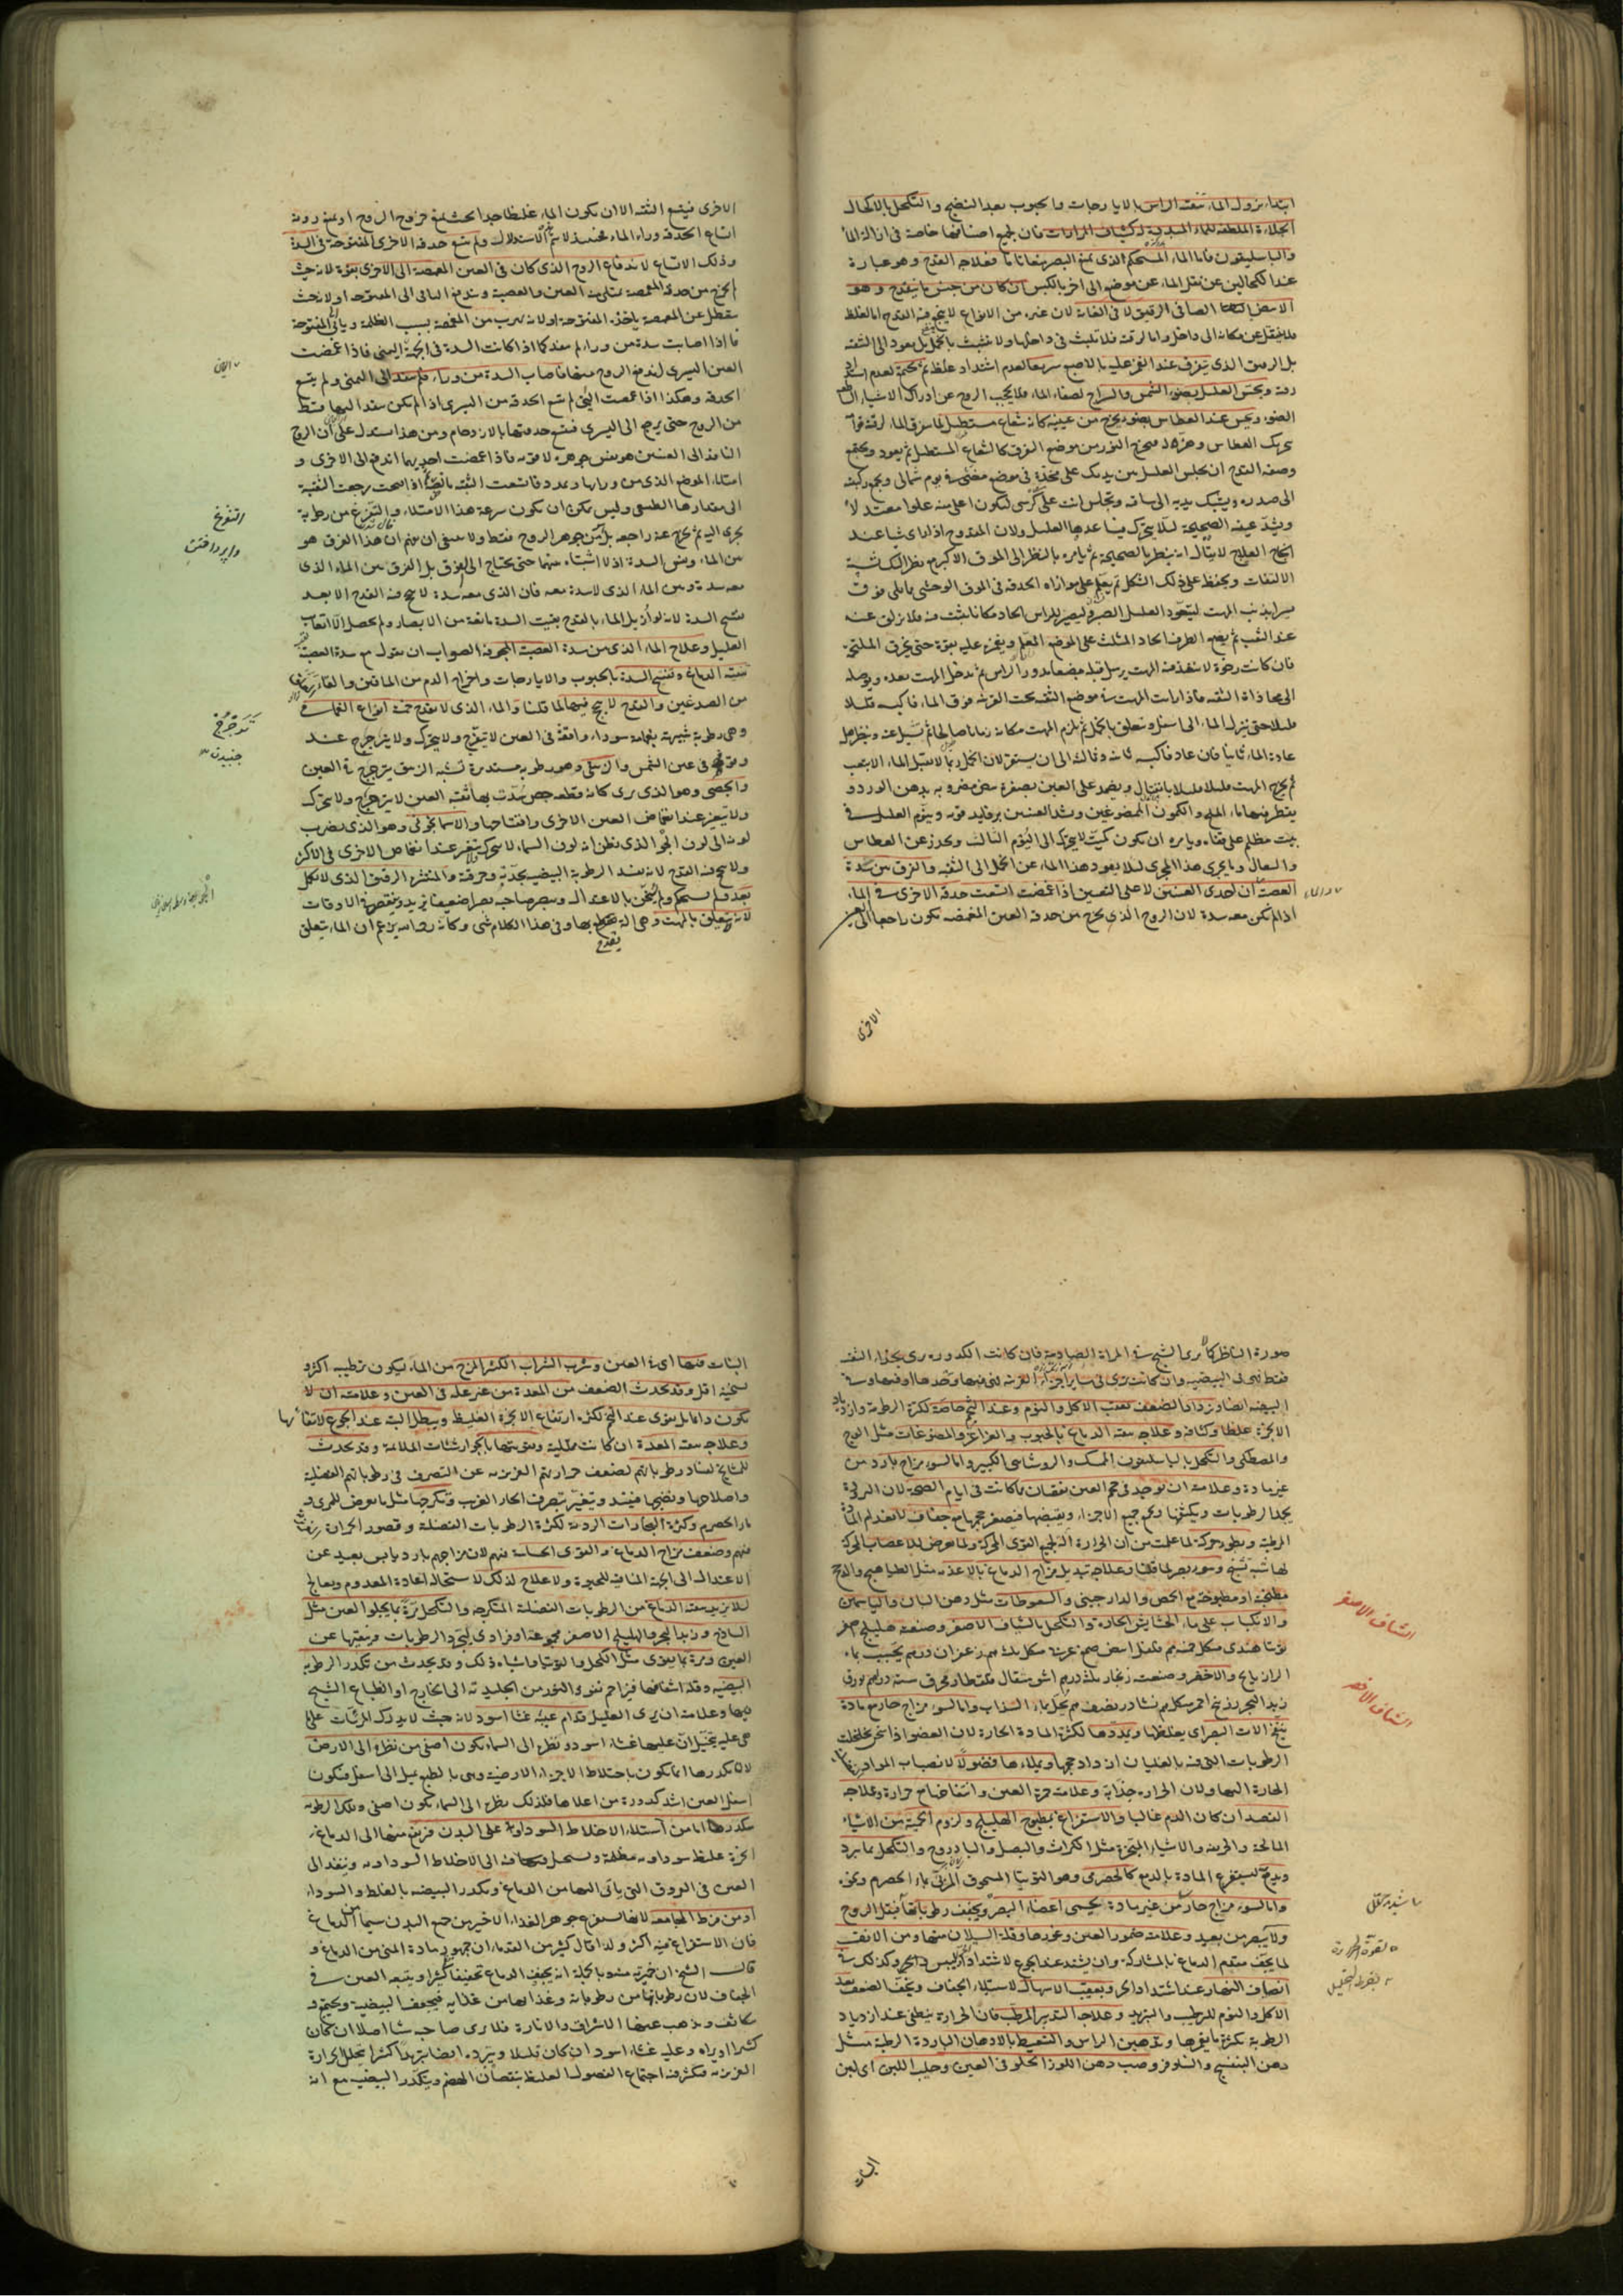 ابتداء نزول الماء تنقية الراس بالايارجات والحبوب بعد النضج والتكحل بالاكحال
الجلاءة الملطفة للماء المبدية كشياف المرارات فان لجميع اصنافها خاصة فى ازالة الماء
والباسليقون فاما الماء المستحكم الذى يمنع البصر فعلاجه القدح وهو عبارة
عند الكحالين عن نقل الماء عن موضع الى اخر بالكبس ان كان من جنس ما ينقدح وهو
الابيض الصافى الرقيق لا فى الغاية لان غيره من الانواع لا ينجع فيه القدح اما الغلظ
فلا ينتقل عن مكانه الى داخل واما لرقته فلا يلبث فى داخلها ولا يتشبث بالخمل بل يعود الى الثقبة
بل الرقيق الذى يتفرق عند الغمز عليه بالاصبع سريعا لعدم اشتداد غلظه ثم يجتمع لعدم
رقته ويحس العليل بضوء الشمس والسراج لصفاء الماء فلا يحجب الروح عن ادراك الاشياء
الضوء ويحس عند العطاس بضوء يخرج من عينيه كانه شعاع مستطيل
تحريك العطاس وهزه له فيخرج النور من موضع التفرق كالشعاع المستطيل ثم يعود ويجتمع
وصفة القدح ان يجلس العليل بين يديك على مخدة فى موضع مضئ فى يوم شمالى ويجمع ركبتيه
الى صدره ويشبك يديه الى ساقه وتجلس انت على كرسى لتكون اعلى منه علوا معتدلا
ويشد عينه الصحيحة لئلا يتحرك فيساعدها العليل ولان المقدوح اذا راى شيا عند
انجح العلاج لا يقال انه ينظر بالصحيحة ثم يامره بالنظر الى الموق الاكبر
الالتفات ويحفظ على ذلك الشكل ثم يعلم على موازاة الحدقة فى الموق الوحشى
بذنب المهت ليتعود العليل الصبر وليصير للراس الحاد مكانا يثبت فيه فلا يزلق عنه
عند الثقب ثم يضع الطرف الحاد المثلث على الموضع المعلم ويغمز عليه بقوة حتى يخرق الملتحم
فان كانت رخوة لا ينفذ فيه المهت يرسل قبله مبضع مدور الراس ثم يدخل المهت بعده ويوصله
الى محاذاة الثقبة فاذا رايت المهت فى موضع الثقبة تحت القرنية فوق الماء فاكبسه قليلا
قليلا حتى ينزل الماء الى اسفل ويتعلق بالخمل ثم يلزم المهت مكانه زمانا صالحا ثم
عاد الماء ثانيا فان عاد فاكبسه ثانية وثالثة الى ان يستقر
ثم يخرج المهت قليلا قليلا بانفتال ويضمد على العين بصفرة بيض مضروبة بدهن الورد و
يقطر فيها ماء الملح والكمون الممضوغين ويشد العينين برفايد قوية وينوم العليل فى
بيت مظلم على قفاه ويامره ان يكون كميت لا يتحرك الى اليوم الثالث ويحرز عن العطاس
والسعال وما يجرى هذا المجرى لئلا يعود هذا الماء عن الخمل الى الثقبة والفرق بين سدة
العصبة ان احدى العينين لا على التعيين اذا غمضت اتسعت حدقة الاخرى فى الماء
اذا لم يكن معه سدة لان الروح الذى يخرج من حدقة العين المغمضة يكون راجعا الى
الاخرى
الاخرى فيتسع الثقبة الا ان يكون الماء غليظا جدا بحيث يمنع خروج الروح او يمنع رؤية
اتساع الحدقة وراء الماء فحينئذ لا يتم الاستدلال ولم يتسع حدقة الاخرى المفتوحة فى السدة
وذلك الاتساع لاندفاع الروح الذى كان فى العين المغمضة الى الاخرى بقوة لانه حيث
لم يخرج من حدقة المغمضة يمتلى منه العين والعصبة ويندفع الباقى الى المفتوحة او لانه حيث
يتعطل عن المغمضة ياخذه المفتوحة او لانه يهرب من المغمضة بسبب الظلمة وياتى المفتوحة
فاذا اصابت سدة من وراء لم ينفذ كما اذا كانت السدة فى الجهة اليمنى فاذا غمضت
العين اليسرى اندفع الروح منها فاصاب السدة من وراء فلم ينفذ الى اليمنى ولم يتسع
الحدقة وهكذا اذا غمضت اليمنى لم تتسع الحدقة من اليسرى اذ لم يكن ينفذ اليها قسط
من الروح حتى يرجع الى اليسرى فيتسع حدقتها بالازدحام ومن هذا استدل على ان الروح
النافذ الى العينين هو بعينه جوهره لا قوته فاذا غمضت احديهما اندفع الى الاخرى و
امتلاء الموضع الذى من ورائها وتمدد فاتسعت الثقبة ثم اذا فتحت رجعت الثقبة
الى مقدارها الطبيعى وليس يمكن ان يكون سرعة هذا الامتلاء والتفرغ من رطوبة
يجرى اليه ثم يخرج عنه راجعة بل من جوهر الروح فقط ولا ينبغى ان يتوهم ان هذا الفرق هو
بين الماء وبين السدة اذ لا اشتباه بينهما حتى يحتاج الى الفرق بل الفرق بين الماء الذى
معه سدة وبين الماء الذى لا سدة معه فان الذى معه سدة لا ينجع فيه القدح الا بعد
تفتيح السدة لانه لو ازيل الماء بالقدح بقيت السدة مانعة من الابصار ولم يحصل الا اتعاب
العليل وعلاج الماء الذى من سدة العصبة المجوفة الصواب ان يقول مع سدة العصبة
تنقية الدماغ وتفتيح السدة بالحبوب والايارجات واخراج الدم من الماقين والقاء
من الصدغين والقدح لا ينجع فيهما لما قلنا والماء الذى لا ينقدح خمسة انواع الغمامى
وهى رطوبة شبيهة بغمامة سوداء واقفة فى العين لا يتفرق ولا يتحرك ولا يترجرج عند
وقوعه فى عين الشمس والزيبقى وهو رطوبة مستديرة تشبه الزيبق يترجرج فى العين
والجصى وهو الذى يرى كانه قطعة جص سدت بها ثقبة العين لا يترجرج ولا يتحرك
ولا يتغير عند انغماض العين الاخرى وانفتاحها والاسمانجونى وهو الذى يضرب
لونه الى لون الجو الذى يظن انه لون السماء لا يتحرك يتغير عند انغماض الاخرى فى الاكثر
ولا ينجع فيه القدح لانه يفسد الرطوبة البيضية بحدته وحرقته والمنتشر الرقيق الذى لا يكمل
بعد ولم يستحكم ولم يثخن بالاعتدال ويبصر صاحبه بصرا ضعيفا يزيد وينقص فى الاوقات
لانه لا يتعلق بالمهت وهى الة يقدح بها وفى هذا الكلام شئ وكانه رحمه الله يزعم ان الماء يتعلق
التفرغ
واپرداختن
ترجرج
جنبيدن
صورة الناظر كما يرى الشبح فى المراة الصادية فان كانت الكدورة يرى بحذاء الثقبة
فقط فهى فى البيضية وان كانت ترى فى ساير اجزاء القرنية فهى فيها وحدها او فيها وفى
البيضية ايضا ويزداد الضعف بعقب الاكل والنوم وعند التخم خاصة لكثرة الرطوبة وازدياد
الابخرة غلظا وكثافة وعلاجه تنقية الدماغ بالحبوب والغراغر والمضوغات مثل الوج
والمصطكى والتكحل بالباسليقون الممسك والروشنايى الكبير واما لسوء مزاج بارد من
غير مادة وعلامته ان يوجد فى حجم العين نقصان عما كانت فى ايام الصحة لان البرد
يجمد الرطوبات ويكثفها ويجمع جميع الاجزاء ويقبضها فيصغر حجمها مع جفاف لانعدام المادة
المرطبة وبطؤ حركة لما علمت من ان الحرارة الة لجميع القوى المحركة ولما يعرض للاعصاب المحركة
لها شبه تشنج وسوء بصر لما قلنا وعلاجه تبديل مزاج الدماغ بالاغذية مثل الطياهيج والدجج
مطبخة او مطبوخة مع الحمص والدارچينى والسعوطات مثل دهن البان والياسمين
والانكباب على ماء الحشايش الحارة والتكحل بالشياف الاصفر وصنعته هليلج اصفر
توتيا هندى من كل خمسة دراهم فلفل ابيض صمغ عربى من كل ثلثة دراهم زعفران درهم يحبب بماء
الرازيانج والاخضر وصنعته زنجار ثلثة دراهم اشق مثقال قلقطار محرق ستة دراهم بورق
زبد البحر زرنيخ احمر من كل درهم نشادر نصف درهم يحل بماء السذاب واما لسوء مزاج حار مع مادة
ينفخ الات البصر اى يغلظها ويمددها لكثرة المادة الحارة لان العضو اذا سخن تخلخلت
الرطوبات التى فيه بالغليان ازداد حجمها ويملاءها فضولا لانصباب المواد
الحارة اليها ولان الحرارة جذابة وعلامته حمرة العين وانتفاخها مع حرارة وعلاجه
الفصد ان كان الدم غالبا والاستفراغ بمطبوخ الهليلج ولزوم الحمية من الاشياء
المالحة والحريفة والاشياء المبخرة مثل الكراث والبصل والبادروج والتكحل بما يبرد
ويدمع ليستفرغ المادة بالدمع كالحصرمى وهو التوتيا المسحوق المربى بماء الحصرم ونحوه
واما لسوء مزاج حار من غير مادة يحمى اعضاء البصر ويجفف رطوباتها فيقل الروح
ولا يبصر من بعيد وعلامته ضمور العين وغورها وقلة السيلان منها ومن الانف
لما يجف مقدم الدماغ بالمشاركة وان يشتد عند الجوع لاشتداد اليبس والحر وكذلك فى
انصاف النهار عند اشتداد الحر وبعقب الاسهال لاستيلاء الجفاف ويخف الضعف بعد
الاكل والنوم للترطيب والتبريد وعلاجه التدبير المرطب فان الحرارة ينطفى عند ازدياد
الرطوبة بكثرة ما يغمرها وتدهين الراس والتسعيط بالادهان الباردة الرطبة مثل
دهن البنفسج والنيلوفر وصب دهن اللوز الحلو فى العين وحلب اللبن اى لبن
الشياف الاصفر
الشياف الاخضر
البنات
البنات فيها اى فى العين وشرب الشراب الكثير المزج من الماء ليكون ترطيبه اكثر و
تسخينه اقل وقد يحدث الضعف من المعدة من غير علة فى العين وعلامته ان لا
يكون دائما بل يقوى عند التخم لكثرة ارتفاع الابخرة الغليظة ويبطل البتة عند الجوع لانتفائها
وعلاجه تنقية المعدة ان كانت ممتلية وتقويتها بالجوارشنات الملائمة وقد يحدث
للمشايخ لفساد رطوباتهم لضعف حرارتهم الغريزية عن التصرف فى رطوباتهم الفضلية
واصلاحها ونضجها فيفسد ويتغير بتصرف الحار الغريب وتكرجها مثل ما يعرض للمرى و
ماء الحصرم وكثرة البخارات الردية لكثرة الرطوبات الفضلية وقصور الحرارة
فيهم وضعف مزاج الدماغ والقوى الحساسة فيهم لان مزاجهم بارد يابس بعيد عن
الاعتدال الى الجهة المنافية للحيوة ولا علاج لذلك لاستحالة اعادة المعدوم ويعالج
لئلا يزيد بتنقية الدماغ من الرطوبات الفضلية المتكرجة والتكحل مرة بما يجلوا العين مثل
الساذج وزبد البحر والهليلج الاصفر مجموعة او فرادى ليجرد الرطوبات وينقيها عن
العين ومرة بما يقوى مثل الكحل والتوتيا واشباه ذلك وقد يحدث من تكدر الرطوبة
البيضية وقلة اشفافها فيزاحم نفوذ النور من الجليدية الى الخارج او انطباع الشبح
فيها وعلامته ان يرى العليل قدام عينه غشاء اسود لانه حيث لا يدرك المرئيات على ما
هى عليه يتخيل ان عليها غشاء اسود ونظره الى السماء يكون اصفى من نظره الى الارض
لان تكدرها انما يكون باختلاط الاجزاء الارضية وهى بالطبع تميل الى اسفل فيكون
اسفل العين اشد كدورة من اعلاها فلذلك نظره الى السماء يكون اصفى وتكدر الرطوبة
تكدرها اما من استيلاء الاخلاط السوداوية على البدن فيرتفع منها الى الدماغ
ابخرة غليظة سوداوية مظلمة ويستحيل فيه الى الاخلاط السوداوية وينفذ الى
العين فى العروق التى ياتى اليها من الدماغ ويكدر البيضية بالغلظ والسوداء
او من فرط المجامعة لانها تستفرغ جوهر الغذاء الاخير من جميع البدن سيما من الدماغ
فان الاستفراغ منه اكثر ولذا قال كثير من القدماء ان جمهور مادة المنى من الدماغ و
قال الشيخ ان خميرته منه وبالجملة انه يجفف الدماغ تجفيفا كثيرا ويتبعه العين فى
الجفاف لان رطوباتها من رطوباته وغذاءها من غذايه فيجفف البيضية ويجتمع و
يتكاثف ويذهب عنها الاشراق والانارة فلا يرى صاحبه شيا اصلا ان كان
كثيرا او يراه وعليه غشاء اسود ان كان قليلا ويبرد ايضا تبريدا كثيرا بتحلل الحرارة
الغريزية فيكثر فيه اجتماع الفضول الغليظة بنقصان الهضم ويتكدر البيضية مع انه